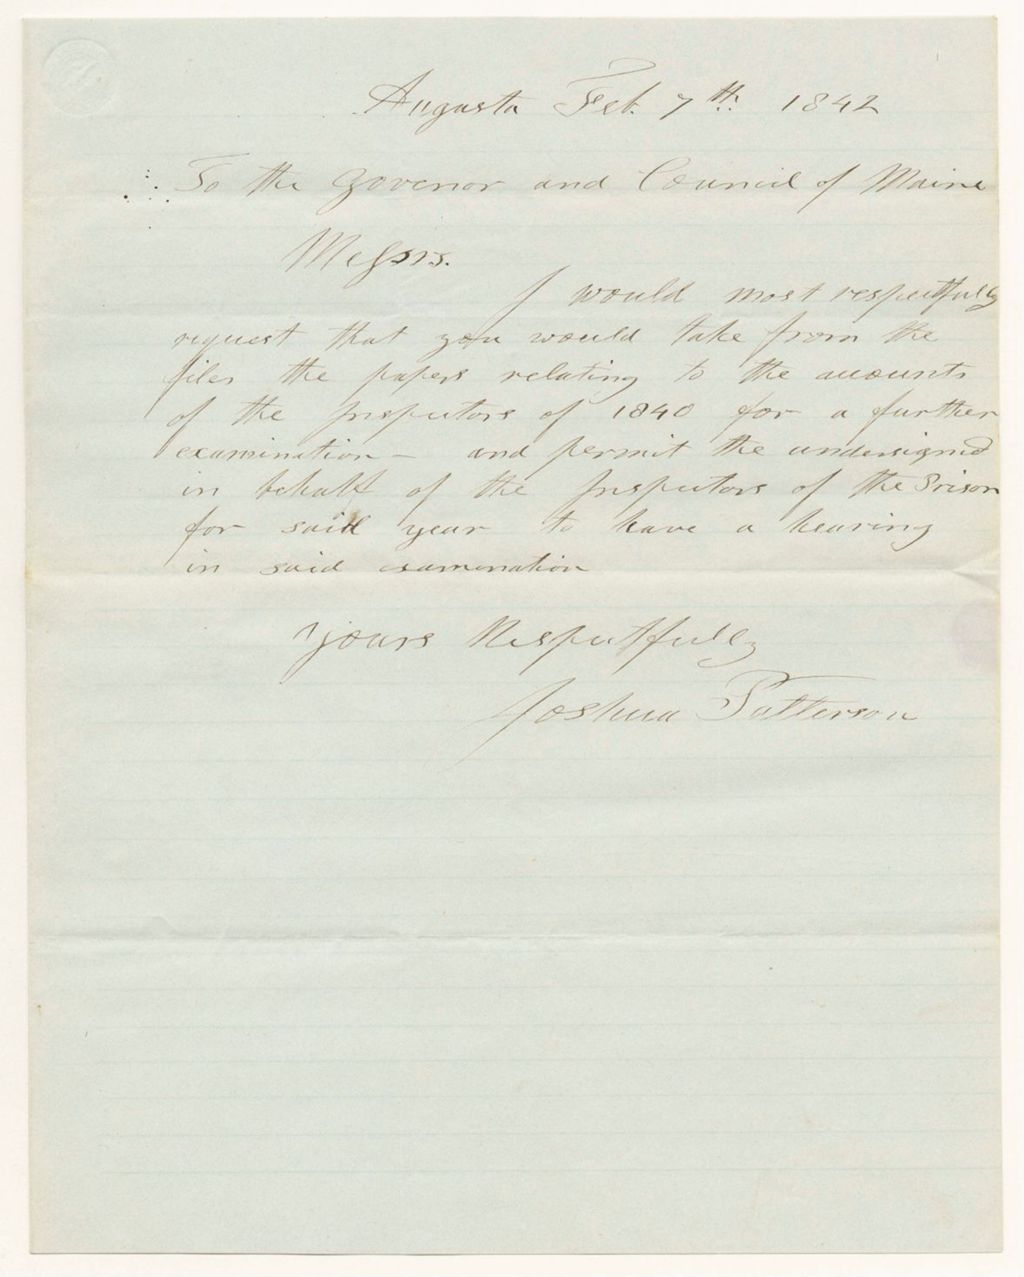 Augusta Feb. 7th. 1842
To the Govenor and Council of Maine
Messrs.
I would most respectfully
request that you would take from the
files the papers relating to the accounts
of the Inspectors of 1840 for a further
examination — and permit the undersigned
in behalf of the Inspectors of the Prison
for said year to have a hearing
in said examination
Yours Respectfully
Joshua Patterson